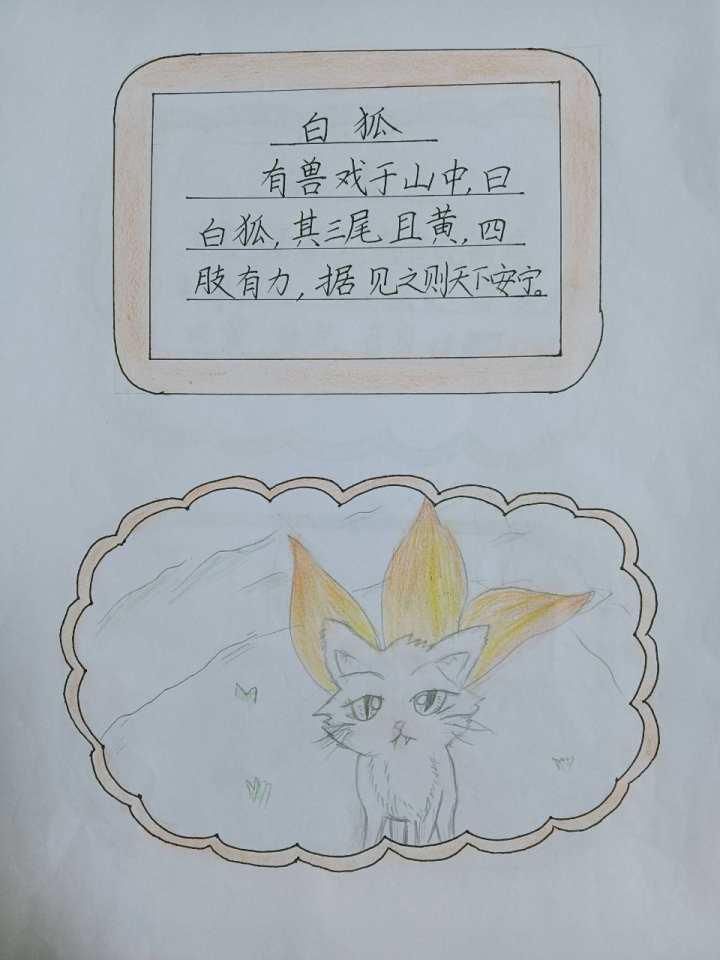 白狐
有兽戏于山中,曰
白狐,其三尾且黄,四
肢有力,据见之则天下安宁。